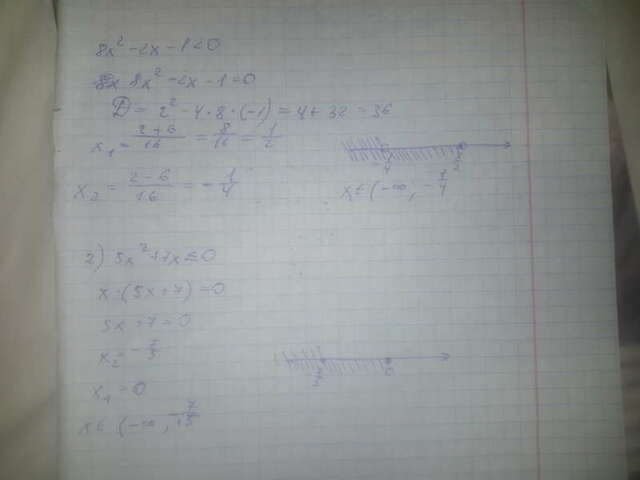 8x² - 2x - 1 < 0
8x² - 2x - 1 = 0
D = 2² - 4 · 8 · (-1) = 4 + 32 = 36
x₁ = (2+6)/16 = 8/16 = 1/2
x₂ = (2-6)/16 = -1/4
x ∈ (-∞, -1/4
2) 5x² + 7x ≤ 0
x · (5x + 7) = 0
5x + 7 = 0
x₂ = -7/5
x₁ = 0
x ∈ (-∞, -7/5